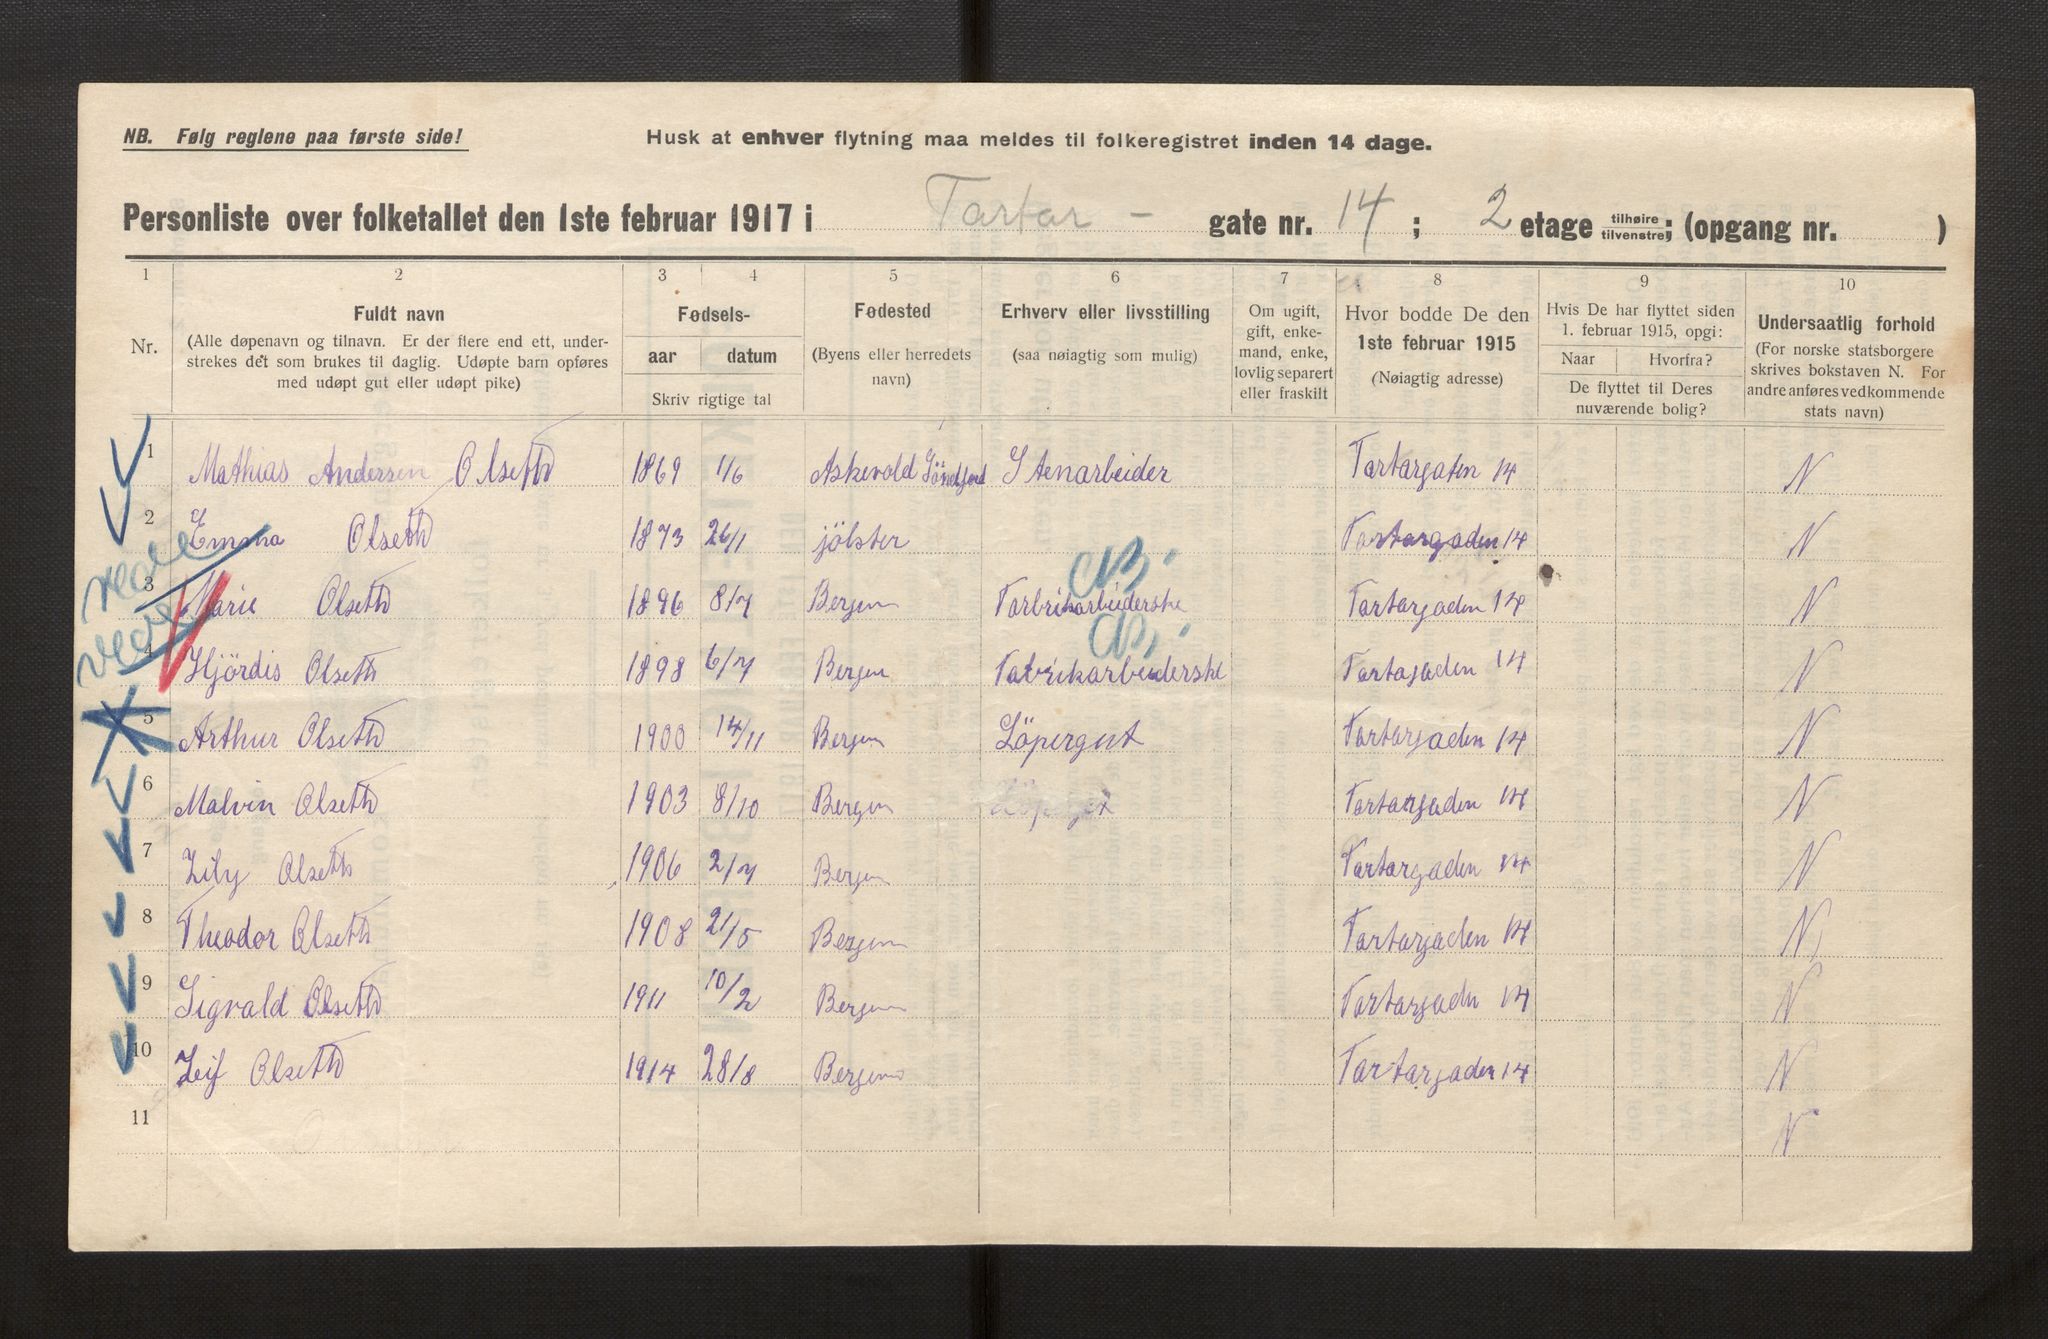 NB. Følg reglene paa første side!
Husk at enhver flytning maa meldes til folkeregistret inden 14 dage.
Personliste over folketallet den 1ste februar 1917 i Tartar - gate nr. 14 ; 2 etage tilhøire tilvenstre; (opgang nr. )
1 2 3 4 5 6 7 8 9 10
Nr.
Fuldt navn
(Alle døpenavn og tilnavn. Er der flere end ett, under-
strekes det som brukes til daglig. Udøpte barn opføres
med udøpt gut eller udøpt pike)
Fødsels-
aar datum
Skriv rigtige tal
Fødested
(Byens eller herredets
navn)
Erhverv eller livsstilling
(saa nøiagtig som mulig)
Om ugift,
gift, enke-
mand, enke,
lovlig separert
eller fraskilt
Hvor bodde De den
1ste februar 1915
(Nøiagtig adresse)
Hvis De har flyttet siden
1. februar 1915, opgi:
Naar Hvorfra?
De flyttet til Deres
nuværende bolig?
Undersaatlig forhold
(For norske statsborgere
skrives bokstaven N. For
andre anføres vedkommende
stats navn)
1 Mathias Andersen Olseth 1869 1/6 Askevold Söndfjord Stenarbeider Tartargaten 14 N
2 Emma Olseth 1873 26/1 jölster Tartargaden 14 N
3 Marie Olseth 1896 8/7 Bergen Farbrikarbeiderske Tartargaden 14 N
4 Hjördis Olseth 1898 6/7 Bergen Fabrikarbeiderske Tartagaden 14 N
5 Arthur Olseth 1900 14/11 Bergen Löpergut Tartargaden 14 N
6 Malvin Olseth 1903 8/10 Bergen Tartargaden 14 N
7 Lily Olseth 1906 2/7 Bergen Tartargaden 14 N
8 Theodor Olseth 1908 21/5 Bergen Tartargaden 14 N
9 Sigvald Olseth 1911 10/2 Bergen Tartargadn 14 N
10 Leif Olseth 1914 28/8 Bergen Tartargaden 14 N
11 N